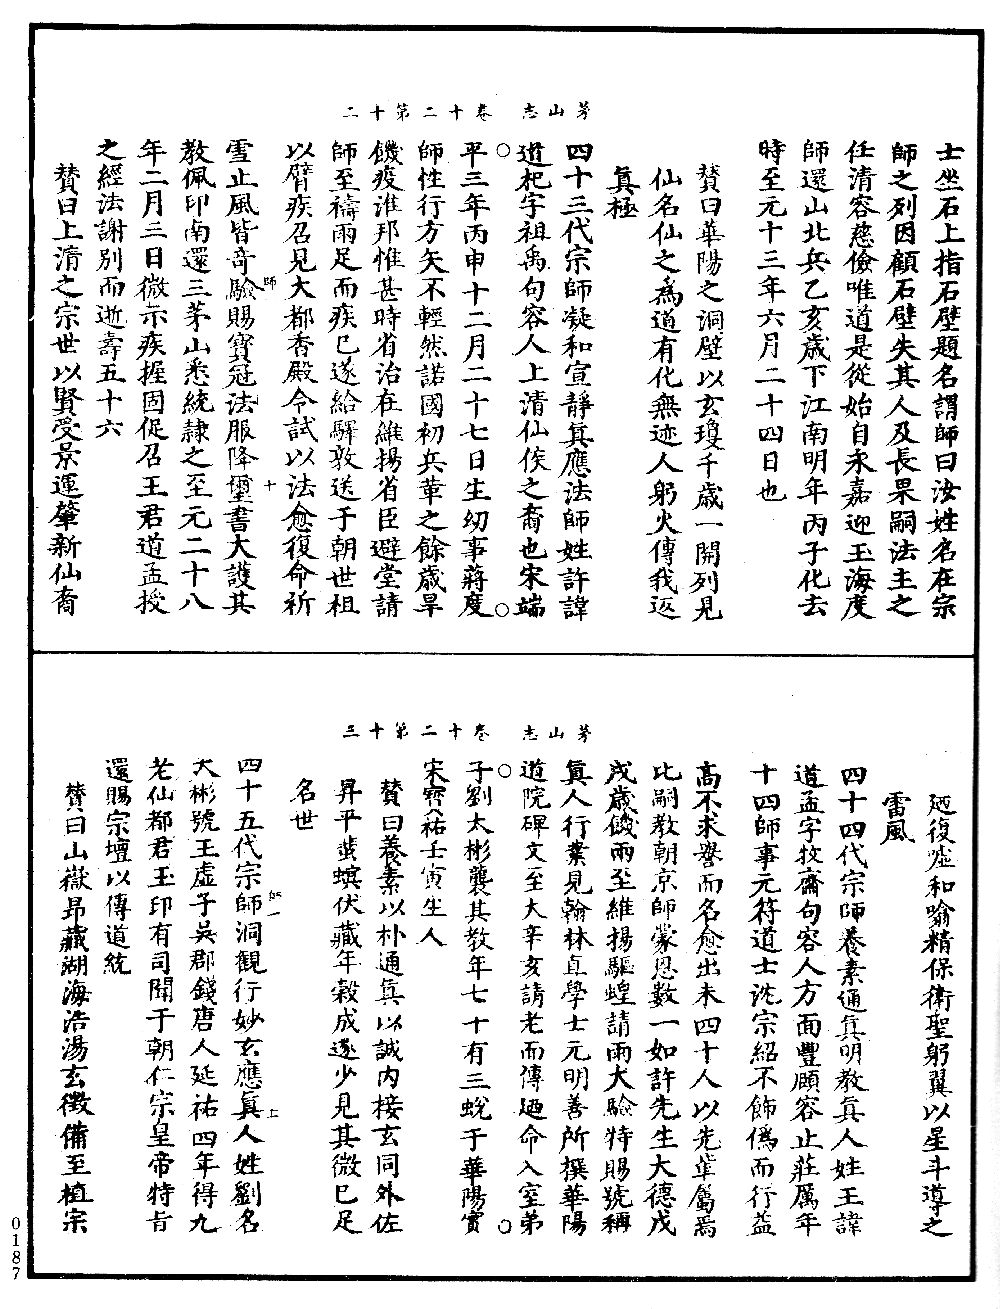 茅山志　卷十二第十二
士坐石上指石壁題名謂師曰汝姓名在宗
師之列因顧石壁失其人及長果嗣法主之
任清容慈儉唯道是從始自永嘉迎玉海度
師還山北兵乙亥歲下江南明年丙子化去
時至元十三年六月二十四日也
贊曰華陽之洞壁以玄瓊千歲一開列見
仙名仙之為道有化無迹人躬火傳我返
真極
四十三代宗師凝和宣靜真應法師姓許諱
道杞字祖禹句容人上清仙侯之裔也宋端
平三年丙申十二月二十七日生幼事蔣度
師性行方矢不輕然諾國初兵革之餘歲旱
饑疫淮邦惟甚時省治在維揚省臣避堂請
師至禱雨足而疾已遂給驛敦送于朝世祖
以臂疾召見大都香殿令試以法愈復命祈
雪止風皆奇驗賜寶冠法服降璽書大護其
教佩印南還三茅山悉統隸之至元二十八
年二月三日微示疾握固促召王君道孟授
之經法謝別而逝壽五十六
贊曰上清之宗世以賢受景運肇新仙裔
師　十
茅山志　卷十二第十三
廼復墟和喻精保衛聖躬翼以星斗導之
雷風
四十四代宗師養素通真明教真人姓王諱
道孟字牧齋句容人方面豐頤容止莊厲年
十四師事元符道士沈宗紹不飾偽而行益
高不求譽而名愈出未四十人以先輩屬焉
比嗣教朝京師蒙恩數一如許先生大德戊
戌歲饑雨至維揚驅蝗請雨大驗特賜號稱
真人行業見翰林直學士元明善所撰華陽
道院碑文至大辛亥請老而傳廼命入室弟
子劉大彬襲其教年七十有三蛻于華陽實
宋寶祐壬寅生人
贊曰養素以朴通真以誠內接玄同外佐
昇平蝱螟伏藏年穀成遂少見其微已足
名世
四十五代宗師洞觀行妙玄應真人姓劉名
大彬號玉虛子吳郡錢唐人延祐四年得九
老仙都君玉印有司聞于朝仁宗皇帝特旨
還賜宗壇以傳道統
贊曰山嶽昂藏湖海浩湯玄徵備至植宗
師一　上
0187